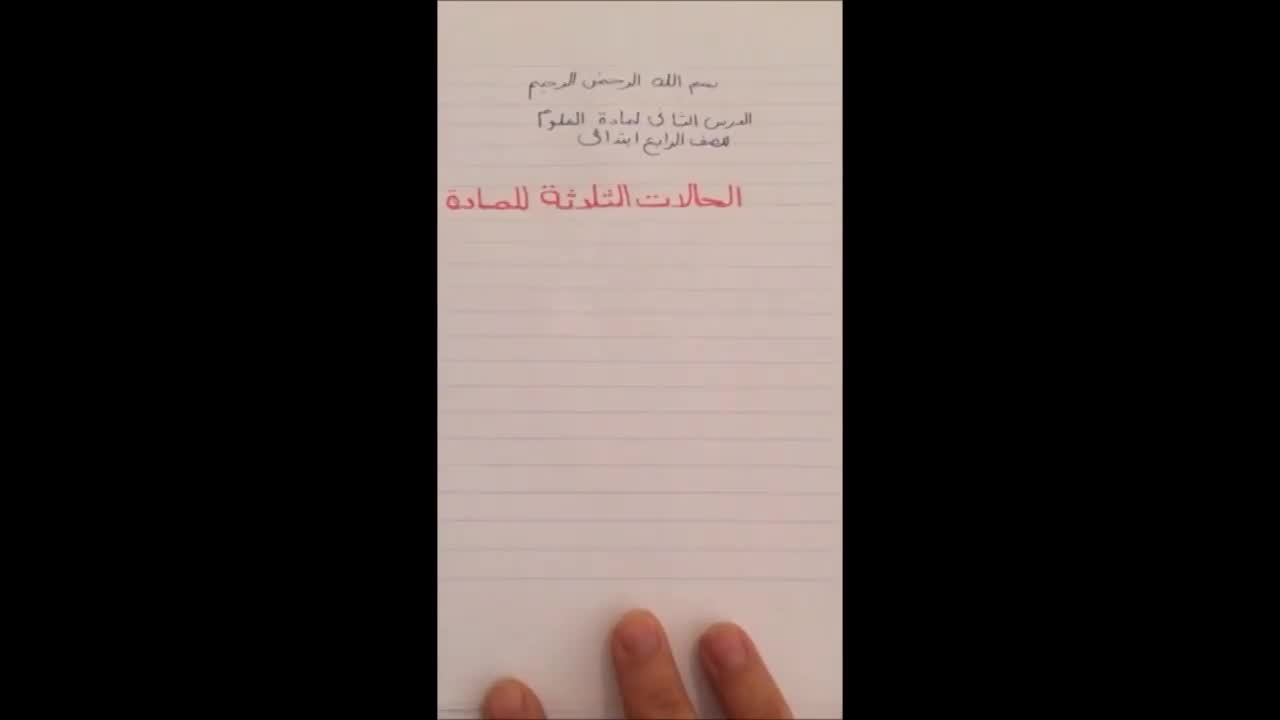 بسم الله الرحمن الرحيم
الدرس الثانى لمادة العلوم
للصف الرابع ابتدائى
الحالات الثلاثة للمادة